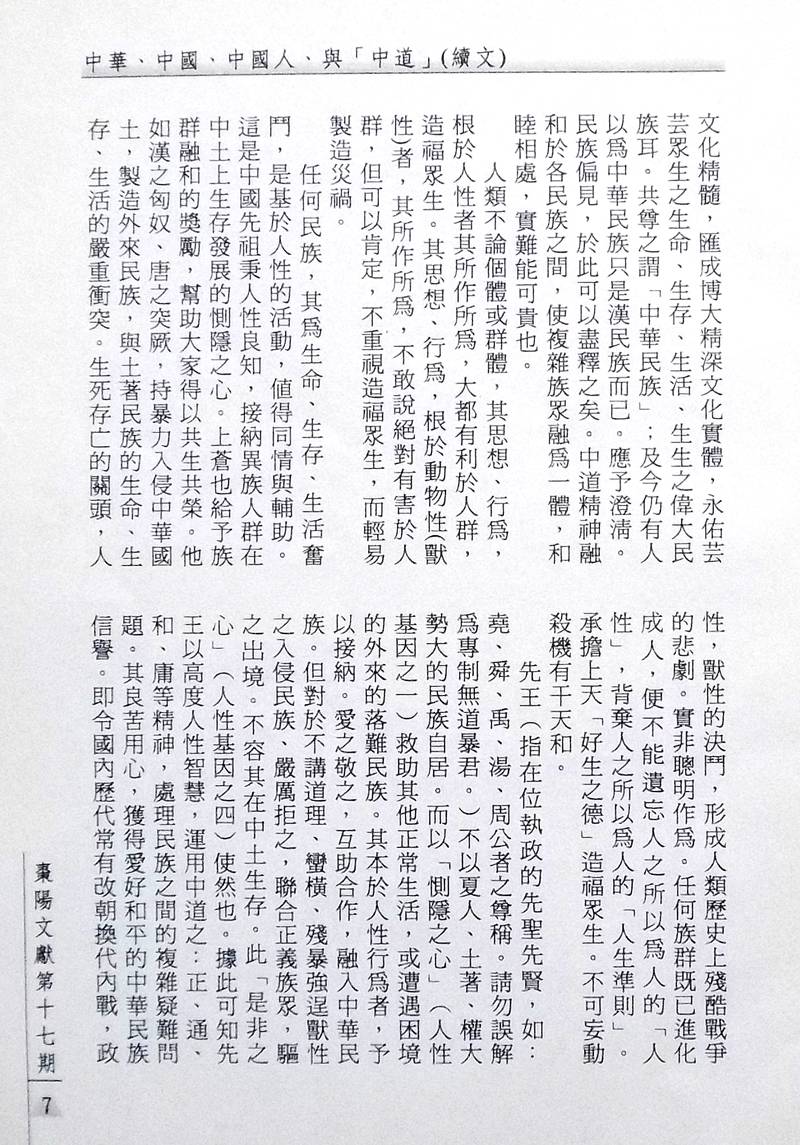 中華、中國、中國人、與「中道」(續文)
文化精髓，匯成博大精深文化實體，永佑芸
芸眾生之生命、生存、生活、生生之偉大民
族耳。共尊之謂「中華民族」；及今仍有人
以為中華民族只是漢民族而已。應予澄清。
民族偏見，於此可以盡釋之矣。中道精神融
和於各民族之間，使複雜族眾融為一體，和
睦相處，實難能可貴也。
人類不論個體或群體，其思想、行為，
根於人性者其所作所為，大都有利於人群，
造福眾生。其思想、行為，根於動物性(獸
性)者，其所作所為，不敢說絕對有害於人
群，但可以肯定，不重視造福眾生，而輕易
製造災禍。
任何民族，其為生命、生存、生活奮
鬥，是基於人性的活動，值得同情與輔助。
這是中國先祖秉人性良知，接納異族人群在
中土上生存發展的惻隱之心。上蒼也給予族
群融和的獎勵，幫助大家得以共生共榮。他
如漢之匈奴、唐之突厥，持暴力入侵中華國
土，製造外來民族，與土著民族的生命、生
存、生活的嚴重衝突。生死存亡的關頭，人
性，獸性的決鬥，形成人類歷史上殘酷戰爭
的悲劇。實非聰明作為。任何族群既已進化
成人，便不能遺忘人之所以為人的「人
性」，背棄人之所以為人的「人生準則」。
承擔上天「好生之德」造福眾生。不可妄動
殺機有干天和。
先王（指在位執政的先聖先賢，如：
堯、舜、禹、湯、周公者之尊稱。請勿誤解
為專制無道暴君。）不以夏人、土著、權大
勢大的民族自居。而以「惻隱之心」（人性
基因之一）救助其他正常生活，或遭遇困境
的外來的落難民族。其本於人性行為者，予
以接納。愛之敬之，互助合作，融入中華民
族。但對於不講道理、蠻橫、殘暴強逞獸性
之入侵民族、嚴厲拒之，聯合正義族眾，驅
之出境。不容其在中土生存。此「是非之
心」（人性基因之四）使然也。據此可知先
王以高度人性智慧，運用中道之：正、通、
和、庸等精神，處理民族之間的複雜疑難問
題。其良苦用心，獲得愛好和平的中華民族
信譽。即令國內歷代常有改朝換代內戰，政
棗陽文獻第十七期
7